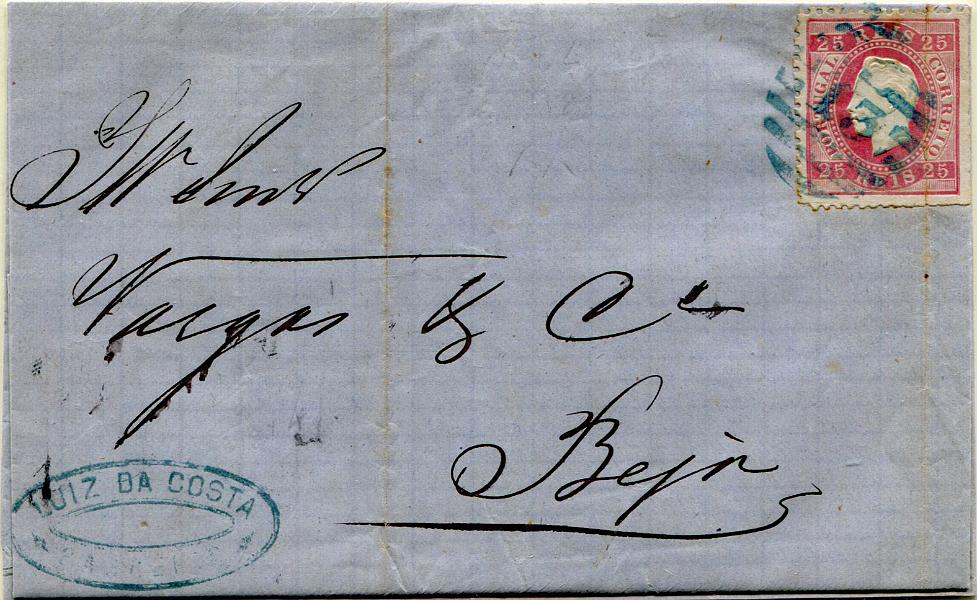 25 REIS 25
PORTUGAL CORREIO
25 REIS 25
Ill.mos Snrs
Vargas & Cª
Beja
LUIZ DA COSTA